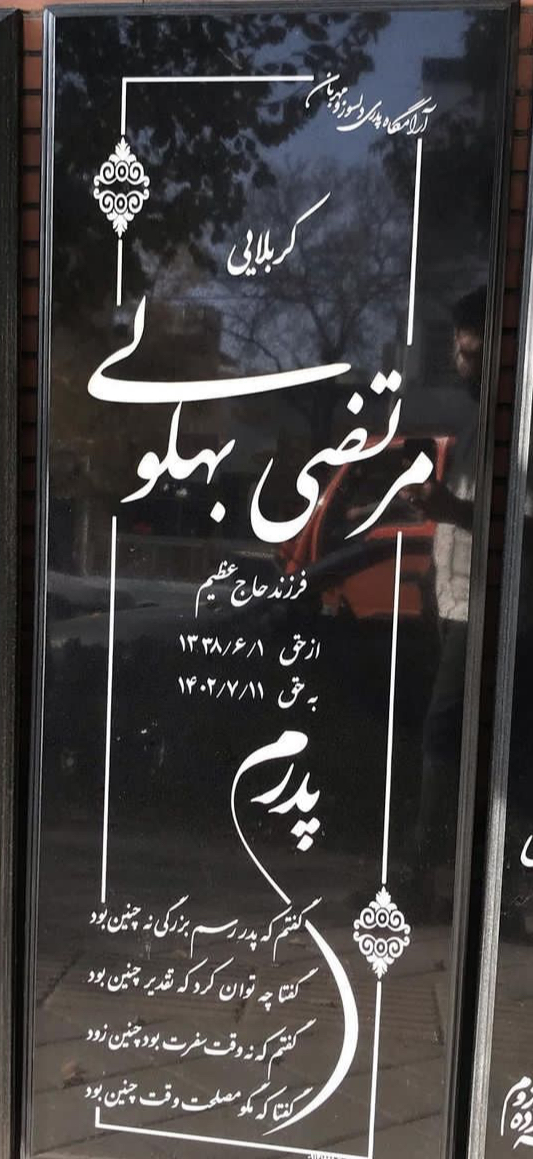 آرامگاه پدری دلسوز و مهربان
کربلایی
مرتضی بهلولی
فرزند حاج عظیم
از حق ۱۳۳۸/۶/۱
به حق ۱۴۰۲/۷/۱۱
پدرم
گفتم که پدر رسم بزرگی نه چنین بود
گفتا چه توان کرد که تقدیر چنین بود
گفتم که نه وقت سفرت بود چنین زود
گفتا که مگو مصلحت وقت چنین بود